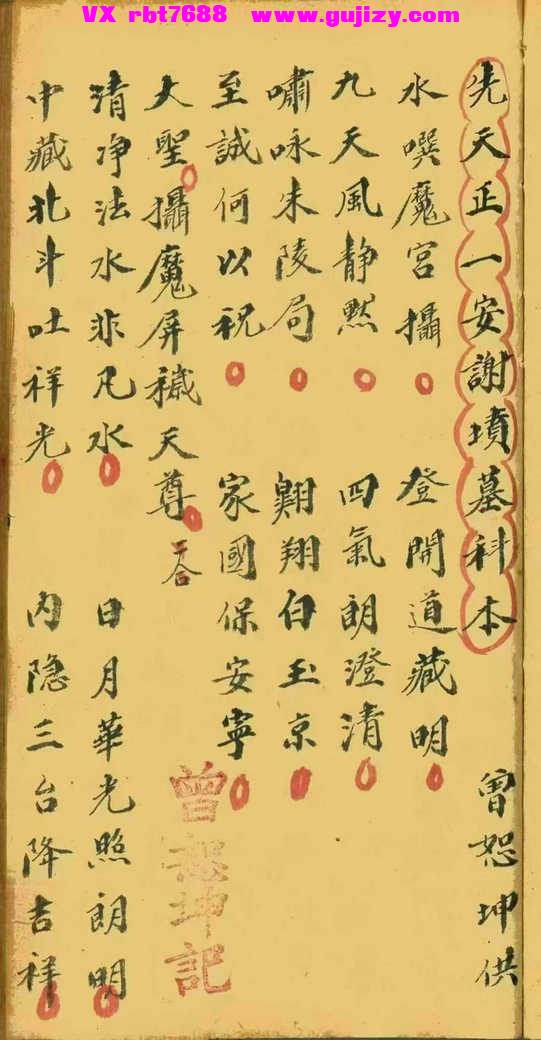 VX rbt7688 www.gujizy.com
先天正一安謝墳墓科本 曾恕坤供
水噀魔宮攝 登開道藏明
九天風静黙 四氣朗澄清
嘯咏朱陵局 翺翔白玉京
至誠何以祝 家國保安寧
大聖攝魔屏穢天尊 二合
曾恕坤記
清净法水非凡水 日月華光照朗明
中藏北斗吐祥光 内隐三台降吉祥